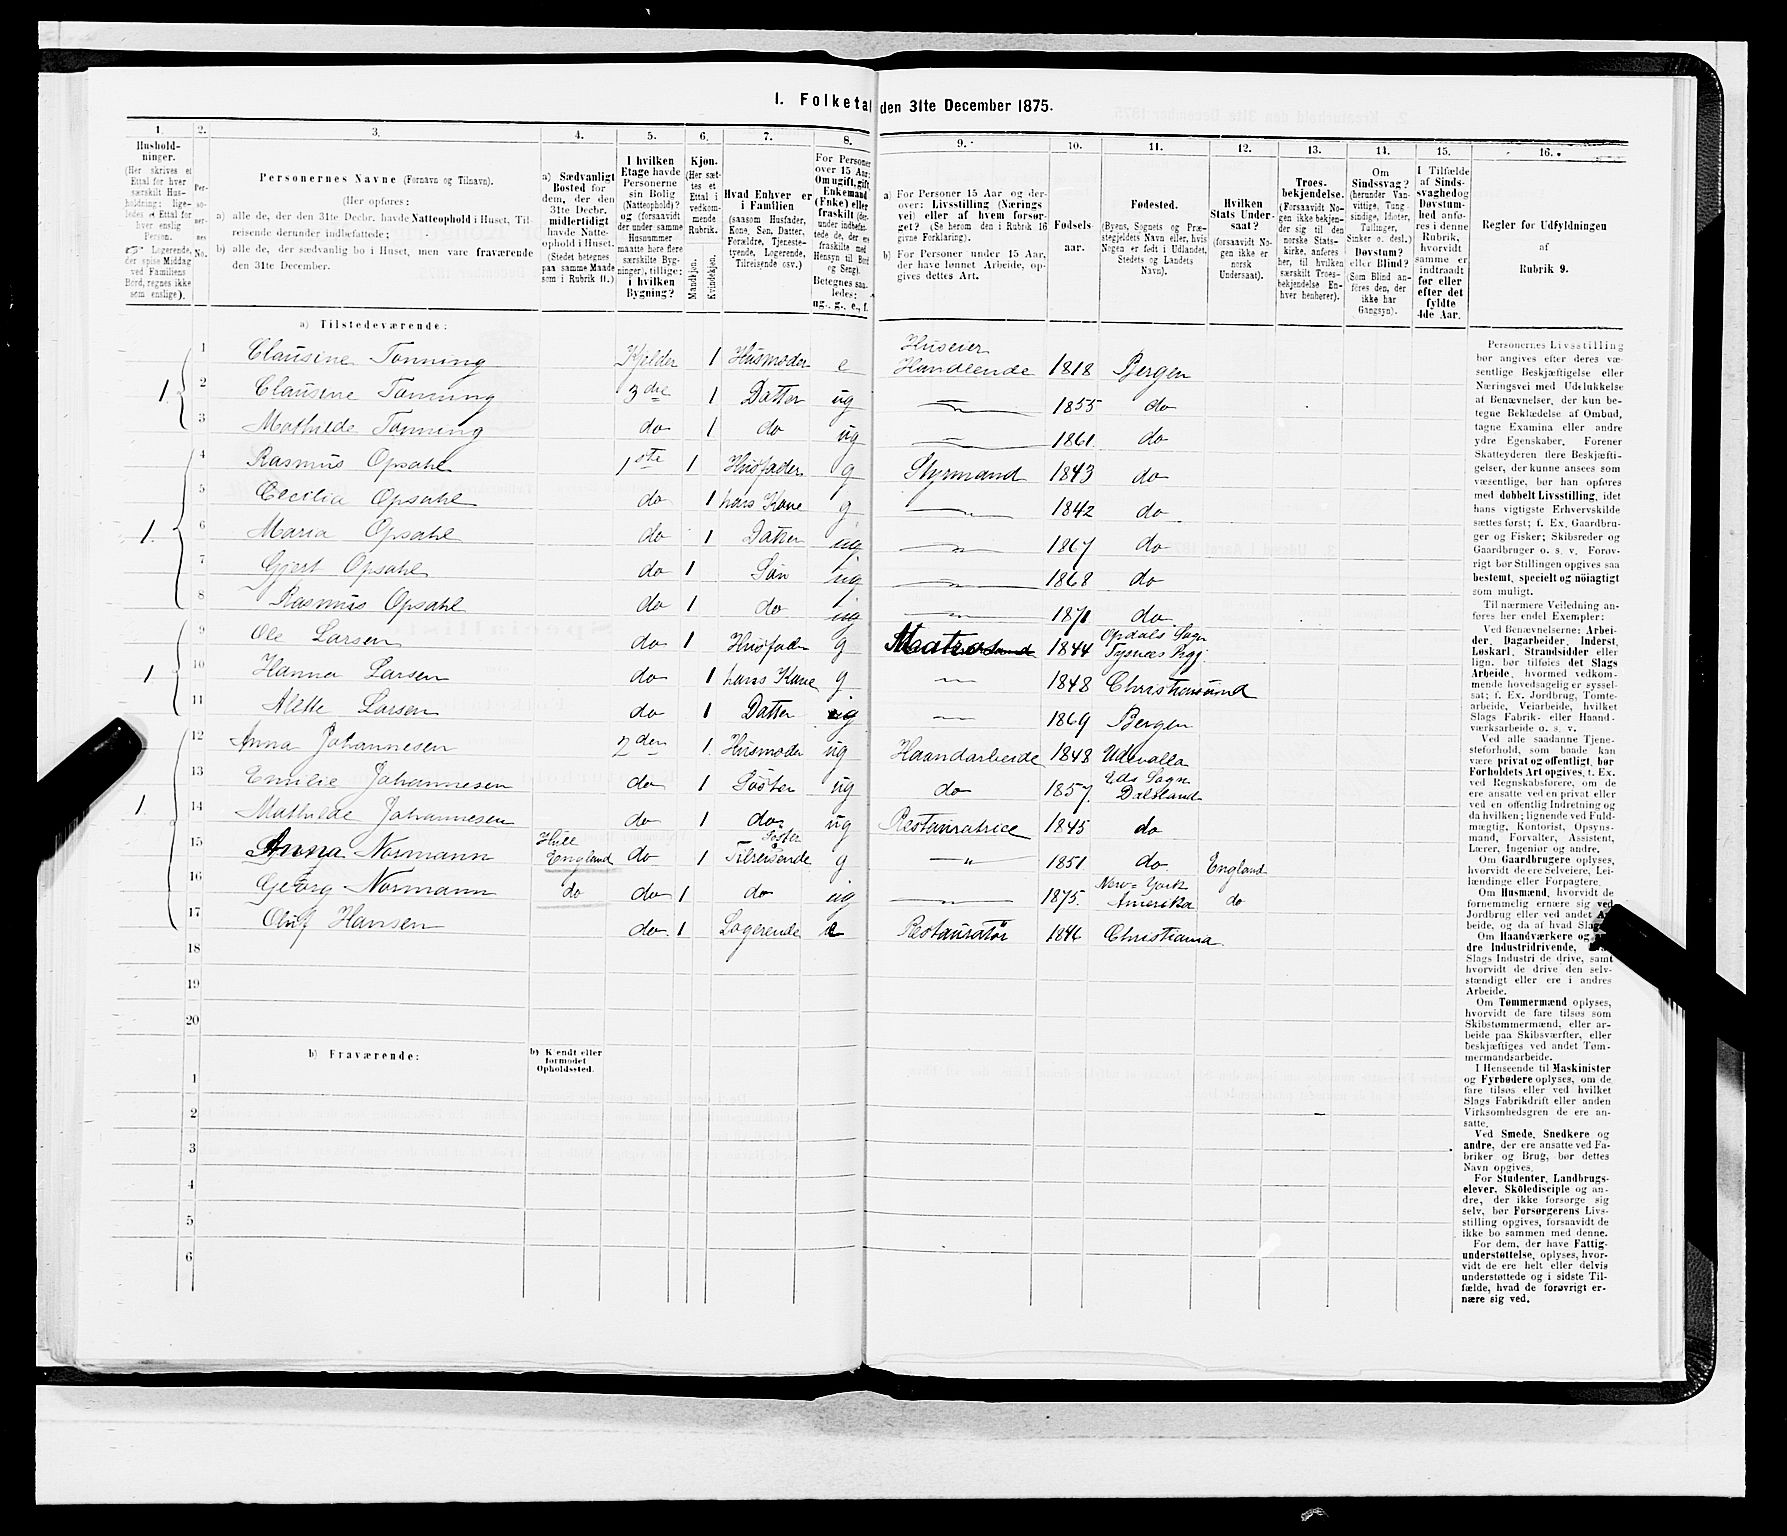 I. Folketal den 31te December 1875.
1. 2. 3. 4. 5. 6. 7. 8. 9. 10. 11. 12. 13. 14. 15. 16.
Hushold-
ninger.
(Her skrives et
Ettal for hver
særskilt Hus-
holdning; lige-
ledes et Ettal for
hver enslig
Person.
Logerende,
der spise Middag
ved Familiens
Bord, regnes ikke
som enslige).
Per-
so-
ner-
nes
No.
Personernes Navne (Fornavn og Tilnavn).
(Her opføres:
a) alle de, der den 31te Decbr. havde Natteophold i Huset, Til-
reisende derunder indbefattede;
b) alle de, der sædvanlig bo i Huset, men vare fraværende
den 31te December.
a) Sædvanligt
Bosted for
dem, der den
31te Decbr.
midlertidigt
havde Natte-
ophold i Huset.
(Stedet betegnes
paa samme Maade
som i Rubrik 11.)
I hvilken
Etage havde
Personerne
sin Bolig
(Natteophold)?
og (forsaavidt
der under samme
Husnummer
maatte høre flere
særskilte Byg-
ninger), tillige:
i hvilken
Bygning?
Kjøn.
(Her sæt-
tes et
Ettal i
vedkom-
mende
Rubrik.
Mandkjøn.
Kvindekjøn.
Hvad Enhver er
i Familien
(saasom Husfader,
Kone, Søn, Datter,
Forældre, Tjeneste-
tyende, Logerende,
Tilreisende osv.)
For Personer
over 15 Aar:
Om ugift, gift,
Enkemand
(Enke) eller
fraskilt (der-
under indbefat-
tede de, der ere
fraskilte med
Hensyn til Bord
og Seng).
Betegnes saa-
ledes:
ug., g., e., f.
a) For Personer 15 Aar og der-
over: Livsstilling (Nærings-
vei) eller af hvem forsør-
get? (Se herom den i Rubrik 16
givne Forklaring).
b) For Personer under 15 Aar,
der have lønnet Arbeide, op-
gives dettes Art.
Fødsels-
aar.
Fødested.
(Byens, Sognets og Præ-
stegjeldets Navn eller, hvis
Nogen er født i Udlandet,
Stedets og Landets
Navn).
Hvilken
Stats Under-
saat?
(forsaavidt No-
gen ikke er
norsk
Undersaat).
Troes-
bekjendelse.
(Forsaavidt No-
gen ikke bekjen-
der sig til den
norske Stats-
kirke, anføres
her, til hvilken
særskilt Troes-
bekjendelse En-
hver henhører).
Om
Sindssvag?
(herunder Van-
vittige, Tung-
sindige, Idioter,
Tullinger,
Sinker o. desl.)
Døvstum?
eller Blind?
(Som Blind an-
føres den, der
ikke har
Gangsyn).
I Tilfælde
af Sinds-
svaghed og
Døvstum-
hed anfø-
res i denne
Rubrik,
hvorvidt
samme er
indtraadt
før eller
efter det
fyldte
4de Aar.
Regler for Udfyldningen
af
Rubrik 9.
a) Tilstedeværende:
1 Clausine Tonning Kjelder 1 Husmoder e Huseier Handlende 1818 Bergen
1 2 Clausine Tonning 3die 1 Datter ug 1855 do
3 Mathilde Tonning do 1 do ug 1861 do
4 Rasmus Opsahl 1ste 1 Husfader g Styrmand 1843 do
5 Cecilia Opsahl do 1 hans Kone g 1842 do
1. 6 Maria Opsahl do 1 Datter ug 1867 do
7 Gjert Opsahl do 1 Søn ug 1868 do
8 Rasmus Opsahl do 1 do ug 1871 do
9 Ole Larsen do 1 Husfader g 1844 Opdals Sogn Tysnæs Prgj.
1 10 Hanna Larsen do 1 hans Kone g 1848 Christiansund
11 Alette Larsen do 1 Datter ug 1869 Bergen
12 Anna Johannesen 2den 1. Husmoder ug Haandarbeide 1848 Udevalla
13 Emilie Johannesen do 1 Søster ug do 1857 Eds Sogn Dalsland
1. 14 Mathilde Johannesen do 1 do ug Restauratrice 1845 do
15 Anna Normann Hull England do 1 Søster Tilreisende g " 1851 do. England
16 Georg Normann do do 1 do ug 1875. New-York Amerika do
17 Oluf Hansen do. 1 Logerende e Restauratør 1846 Christiania
18
19
20
b) Fraværende: b) Kjendt eller
formodet
Opholdssted.
1
2
3
4
5
6
Personernes Livsstilling
bør angives efter deres væ-
sentlige Beskjæftigelse eller
Næringsvei med Udelukkelse
af Benævnelser, der kun be-
tegne Beklædelse af Ombud,
tagne Examina eller andre
ydre Egenskaber. Forener
Skatteyderen flere Beskjæfti-
gelser, der kunne ansees som
væsentlige, bør han opføres
med dobbelt Livsstilling, idet
hans vigtigste Erhvervskilde
sættes først; f. Ex. Gaardbru-
ger og Fisker; Skibsreder og
Gaardbruger o. s. v. Forøv-
rigt bør Stillingen opgives saa
bestemt, specielt og nöiagtigt
som muligt.
Til nærmere Veiledning an-
føres her endel Exempler:
Ved Benævnelserne: Arbei-
der, Dagarbeider, Inderst,
Løskarl, Strandsidder eller
lign. bør tilføies det Slags
Arbeide, hvormed vedkom-
mende hovedsagelig er syssel-
sat; f. Ex. Jordbrug, Tomte-
arbeide, Veiarbeide, hvilket
Slags Fabrik- eller Haand-
værksarbeide o. s. v.
Ved alle saadanne Tjene-
steforhold, som baade kan
være privat og offentligt, bør
Forholdets Art opgives, f. Ex.
ved Regnskabsførere, om de
ere ansatte ved en privat eller
ved en offentlig Indretning og
da hvilken; lignende ved Fuld-
mægtig, Kontorist, Opsyns-
mand, Forvalter, Assistent,
Lærer, Ingeniør og andre.
Om Gaardbrugere oplyses,
hvorvidt de ere Selveiere, Lei-
lændinge eller Forpagtere.
Om Husmænd, hvorvidt de
fornemmelig ernære sig ved
Jordbrug eller ved andet Ar-
beide, og da af hvad Slags.
Om Haandværkere og an-
dre Industridrivende,
Slags Industri de drive, samt
hvorvidt de drive den selv-
stændigt eller ere i andres
Arbeide.
Om Tømmermænd oplyses,
hvorvidt de fare tilsøs som
Skibstømmermænd, eller ar-
beide paa Skibsværfter, eller
beskjæftiges ved andet Tøm-
mermandsarbeide.
I Henseende til Maskinister
og Fyrbødere oplyses, om de
fare tilsøs eller ved hvilket
Slags Fabrikdrift eller anden
Virksomhedsgren de ere an-
satte.
Ved Smede, Snedkere og
andre, der ere ansatte ved Fa-
briker og Brug, bør dettes
Navn opgives.
For Studenter, Landbrugs-
elever, Skoledisciple og an-
dre, der ikke forsørge sig
selv, bør Forsørgerens Livs-
stilling opgives, forsaavidt de
ikke bo sammen med denne.
For dem, der have Fattig-
understøttelse, oplyses, hvor-
vidt de ere helt eller delvis
understøttede og i sidste Til-
fælde, hvad de forøvrigt er-
nære sig ved.